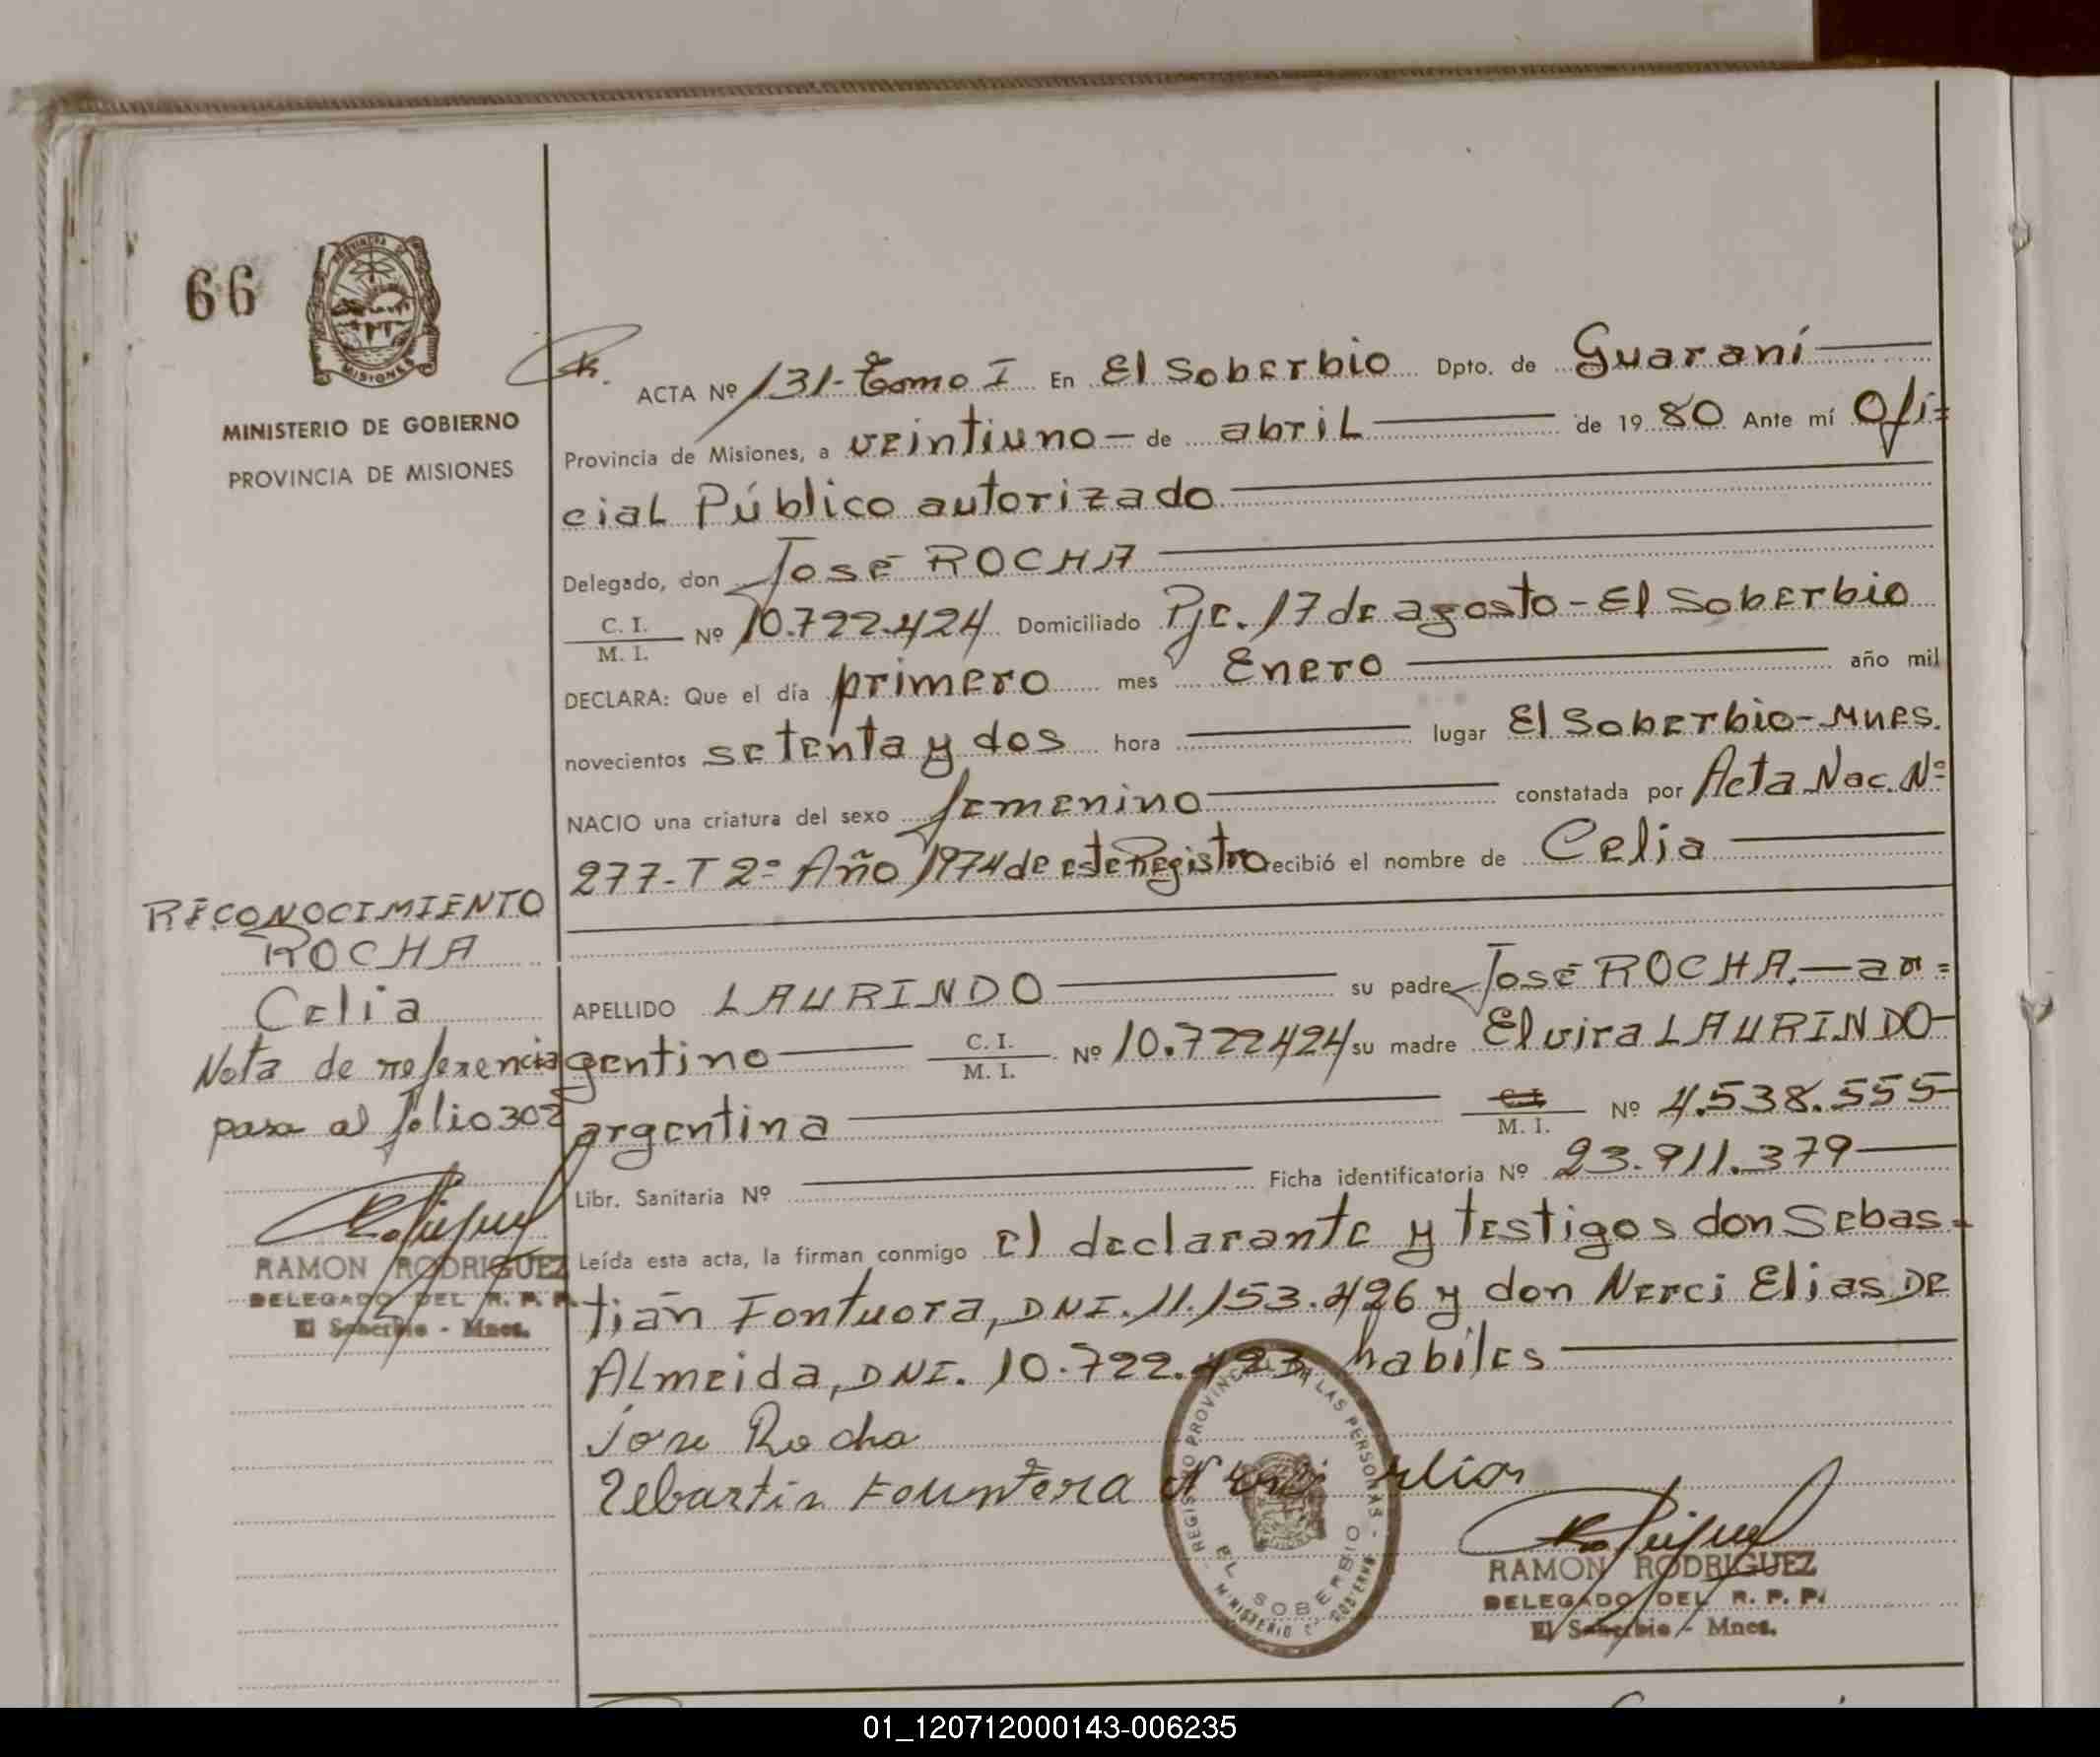 66
PROVINCIA DE
MISIONES
MINISTERIO DE GOBIERNO
PROVINCIA DE MISIONES
ACTA Nº 131- Tomo I En El Soberbio Dpto. de Guaraní
Provincia de Misiones, a veintiuno de abril de 1980 Ante mí Ofi=
cial Público autorizado
Delegado, don José ROCHA
C. I.
M. I. Nº 10.722.424 Domiciliado Pje. 17 de agosto - El Soberbio
DECLARA: Que el día primero mes Enero año mil
novecientos setenta y dos hora lugar El Soberbio-Mnes.
NACIO una criatura del sexo femenino constatada por Acta Nac. Nº
277-T 2º Año 1974 de este Registro recibió el nombre de Celia
RECONOCIMIENTO
ROCHA
Celia
Nota de referencia
pasa al folio 302
APELLIDO LAURINDO su padre José ROCHA.—ar=
gentino C. I.
M. I. Nº 10.722424 su madre Elvira LAURINDO-
argentina C. I.
M. I. Nº 4.538.555
Libr. Sanitaria Nº Ficha identificatoria Nº 23.911.379
Leída esta acta, la firman conmigo el declarante y testigos don Sebas=
tián Fontuora, DNI. 11.153.426 y don Nerci Elias DE
Almeida, DNI. 10.722.423, habiles
RAMON RODRIGUEZ
DELEGADO DEL R. P. P.
El Soberbio - Mnes.
Jose Rocha
Sebastin Fountora Nerci elias
REGISTRO PROVINCIAL DE LAS PERSONAS -
EL SOBERBIO
MINISTERIO DE GOBIERNO
RAMON RODRIGUEZ
DELEGADO DEL R. P. P.
El Soberbio - Mnes.
01_120712000143-006235